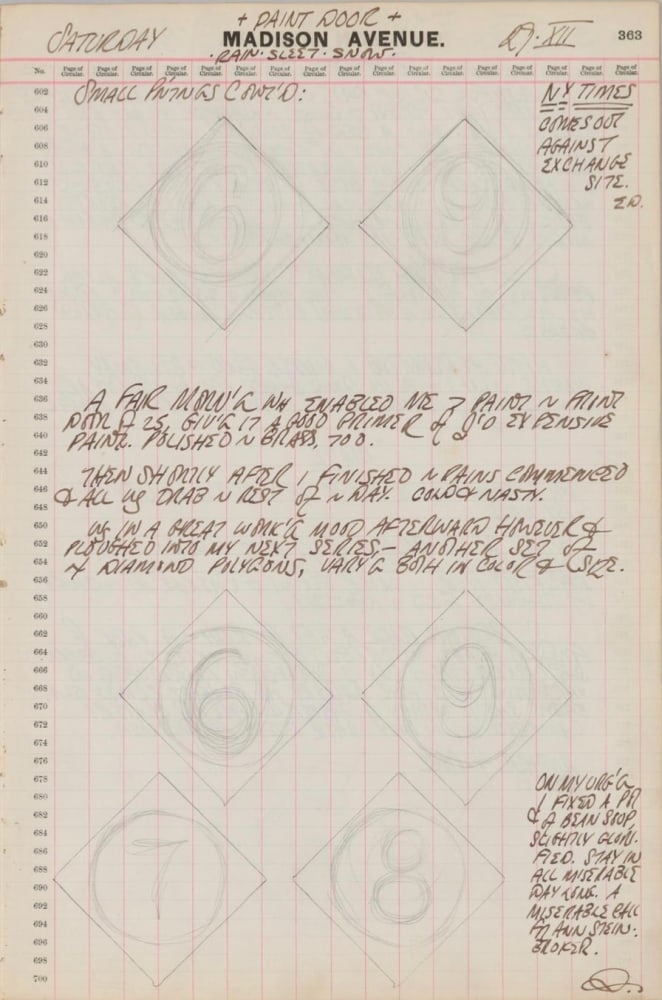 + PAINT DOOR +
SATURDAY
MADISON AVENUE.
27·XII
363
·RAIN·SLEET·SNOW·
No. Page of Circular. Page of Circular. Page of Circular. Page of Circular. Page of Circular. Page of Circular. Page of Circular. Page of Circular. Page of Circular. Page of Circular. Page of Circular. Page of Circular. Page of Circular. Page of Circular. Page of Circular. Page of Circular. Page of Circular.
602
SMALL PNTNGS CONT'D:
NY TIMES
604
COMES OUT
606
AGAINST
608
EXCHANGE
610
SITE.
612
ED.
614
616
618
620
622
624
626
628
6
9
630
632
634
636
A FAIR MORN'G ENABLED ME PAINT FRONT
638
DOOR OF 25, GIV'G IT A GOOD PRIMER OF EXPENSIVE
640
PAINT. POLISHED BRASS, TOO.
642
644
THEN SHORTLY AFTER I FINISHED RAINS COMMENCED
646
& ALL DRAB REST OF DAY. COLD & NASTY.
648
650
IN A GREAT WORK'G MOOD AFTERWARD HOWEVER &
652
PLOUGHED INTO MY NEXT SERIES,- ANOTHER SET OF
654
4 DIAMOND POLYGONS, VARY'G BOTH IN COLOR & SIZE.
656
658
660
662
664
666
668
670
672
674
676
6
9
678
680
682
684
686
688
690
692
694
696
698
700
7
8
ON MY URG'G
I FIXED A POT
OF A BEAN SOUP,
SLIGHTLY GLORI-
FIED. STAY IN
ALL MISERABLE
DAY LONG. A
MISERABLE CALL
ANN STEIN-
BROKER.